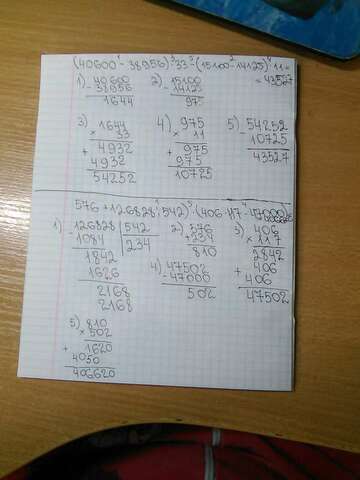 (40600 - 38956) · 33 - (15100 - 14125) · 11 =
= 43527
1) 40600 2) 15100
- 38956 - 14125
1644 975
3) 1644 4) 975 5) 54252
× 33 × 11 - 10725
+ 4932 + 975 43527
4932 975
54252 10725
576 + 126828 : 542) · (406 · 117 - 47000)
1) 126828 | 542 2) 576 3) 406
- 1084 | 234 + 234 × 117
1842 810 2842
1626 4) 47502 + 406
2168 - 47000 406
2168 502 47502
5) 810
× 502
+ 1620
4050
406620